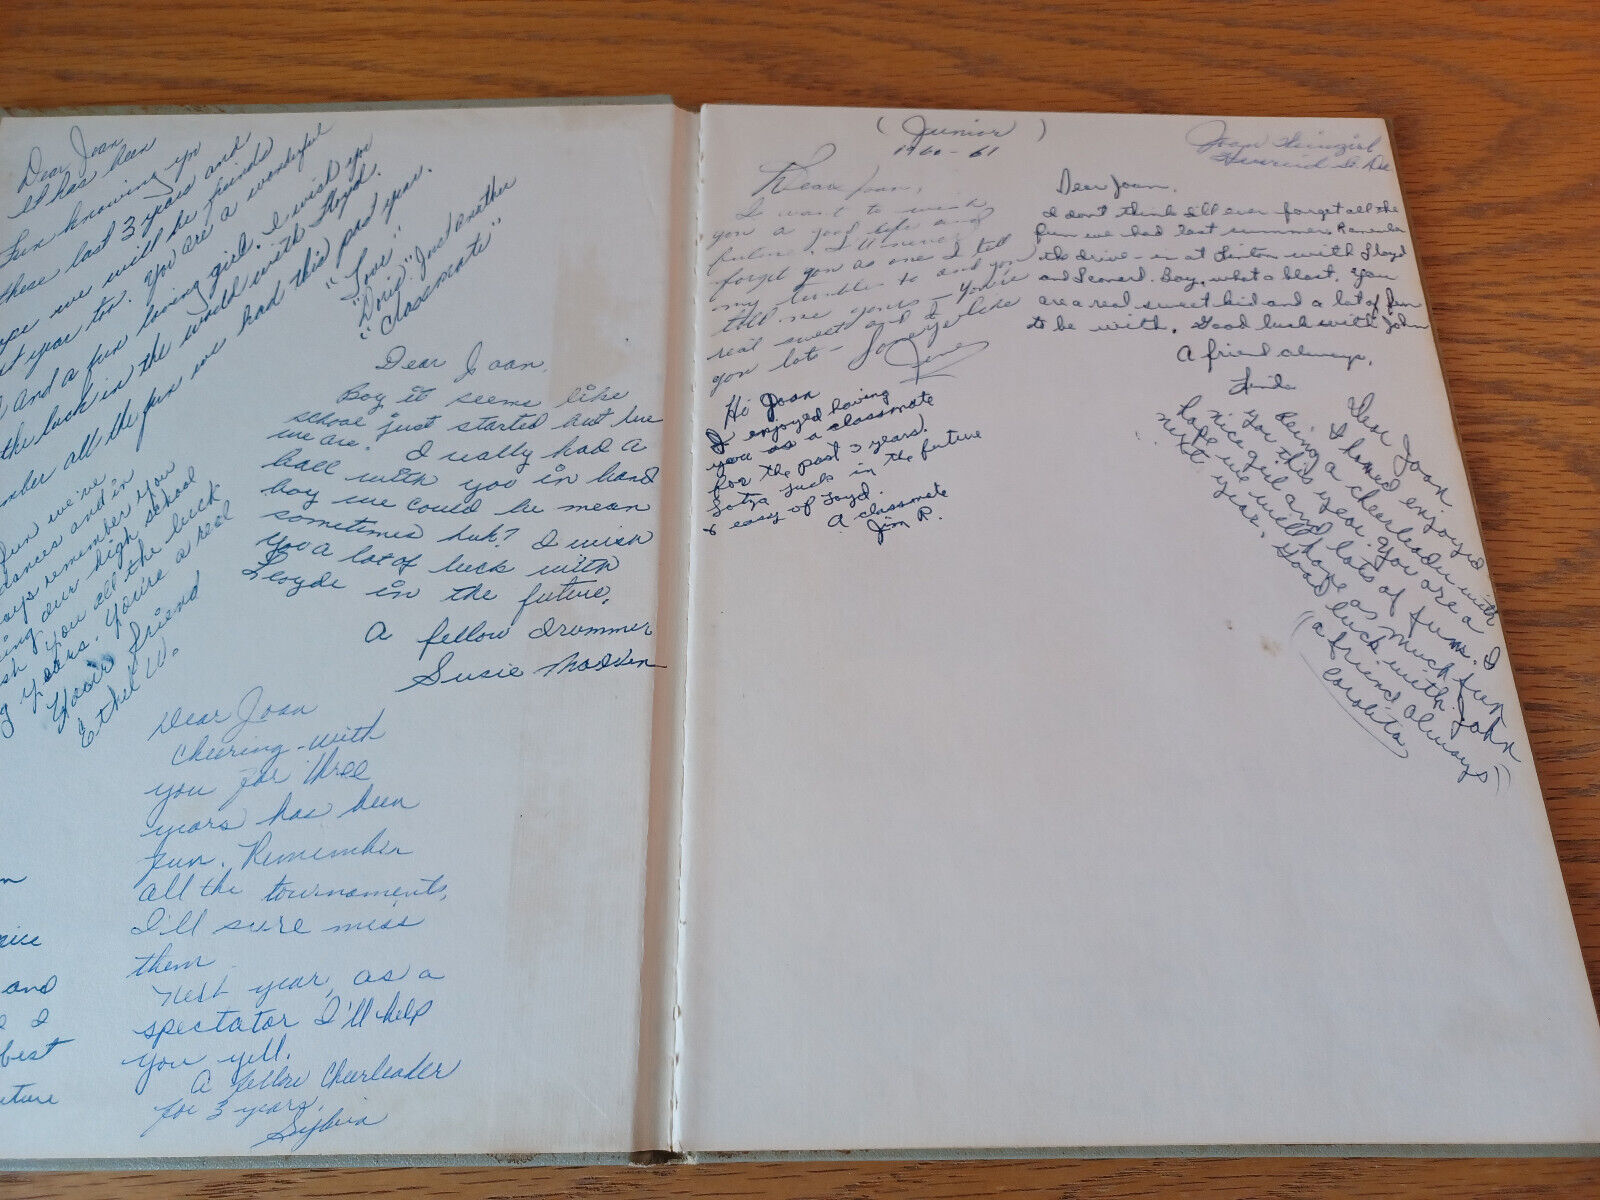 Dear Joan
It has been
Fun knowing you
these last 3 years and
we will be friends
next year too. You are a wonderful
and a fun loving girl. I wish you
the luck in the world with Floyd.
all the fun we had this past year.
"Love"
"Doris" Just another
"Classmate"
Dear Joan,
Boy it seems like
school just started but here
we are. I really had a
ball with you in band
boy we could be mean
sometimes huh? I wish
you a lot of luck with
Lloyde in the future.
A fellow drummer
Susie Madsen
fun we've
dances and in
remember you
our high school
you all the luck
years. You're a real
friend
Ethel W.
Dear Joan
Cheering with
you for three
years has been
fun. Remember
all the tournaments,
I'll sure miss
them
Next year, as a
spectator I'll help
you yell.
A fellow Cheerleader
for 3 years,
Sylvia
and
I
best
(Junior)
1960-61
Joan
Dear Joan,
I want to wish
you a good life and
future. I'll never
forget you as one I tell
my troubles to and you
tell me yours - you're
real sweet and I
you lots -
Hi Joan
I enjoyed having
you as a classmate
for the past 3 years.
Lotsa luck in the future
& easy of Loyd.
A classmate
Jim R.
Dear Joan,
I don't think I'll ever forget all the
fun we had last summer. Remember
the drive-in at Linton with Lloyd
and Leonard. Boy, what a blast. You
are a real sweet kid and a lot of fun
to be with. Good luck with John
A friend always,
Linda
Dear Joan
I have enjoyed
Being a cheerleader with
you this year. You are a
nice girl and lots of fun. I
hope we will have as much fun
next year. Good luck with John
((a friend always))
Carolita